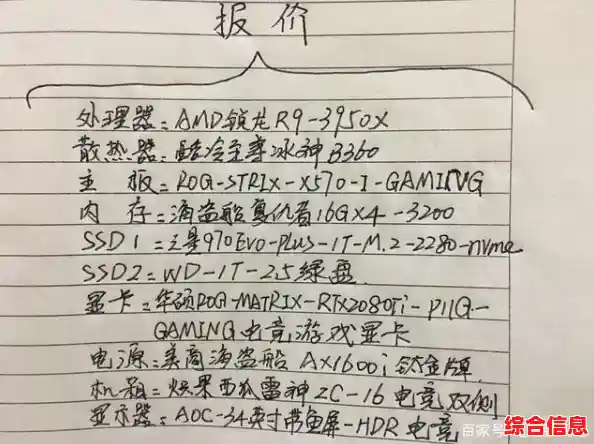 报价
处理器:AMD锐龙R9-3950X
散热器:酷冷至尊冰神B360
主板:ROG-STRIX-X570-I-GAMING
内存:海盗船复仇者16G×4-3200
SSD1:三星970Evo-Plus-1T-M.2-2280-nvme
SSD2:WD-1T-2.5绿盘
显卡:华硕ROG-MATRIX-RTX2080Ti-P11G-
GAMING电竞游戏显卡
电源:美商海盗船AX1600i钛金牌
机箱:炫果西瓜雷神ZC-16电竞双侧
显示器:AOC-34英寸带鱼屏-HDR电竞
百家号
综合信息